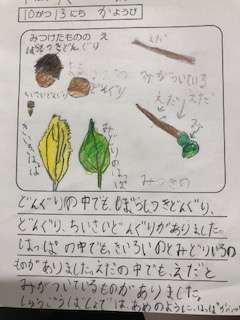 10がつ13にち かようび
みつけたものの え
ぼうしつきどんぐり
えだ
みがついている
えだ
えだ
ちいさいどんぐり
どんぐり
み
きいろいはっぱ
みどりのはっぱ
どんぐりの中でも、ぼうしつきどんぐり、
どんぐり、ちいさいどんぐりがありました。
はっぱの中でも、きいろいのとみどりいろの
ものがありました。えだの中でも、えだと
みがついているものがありました。
あめのように、はっぱが